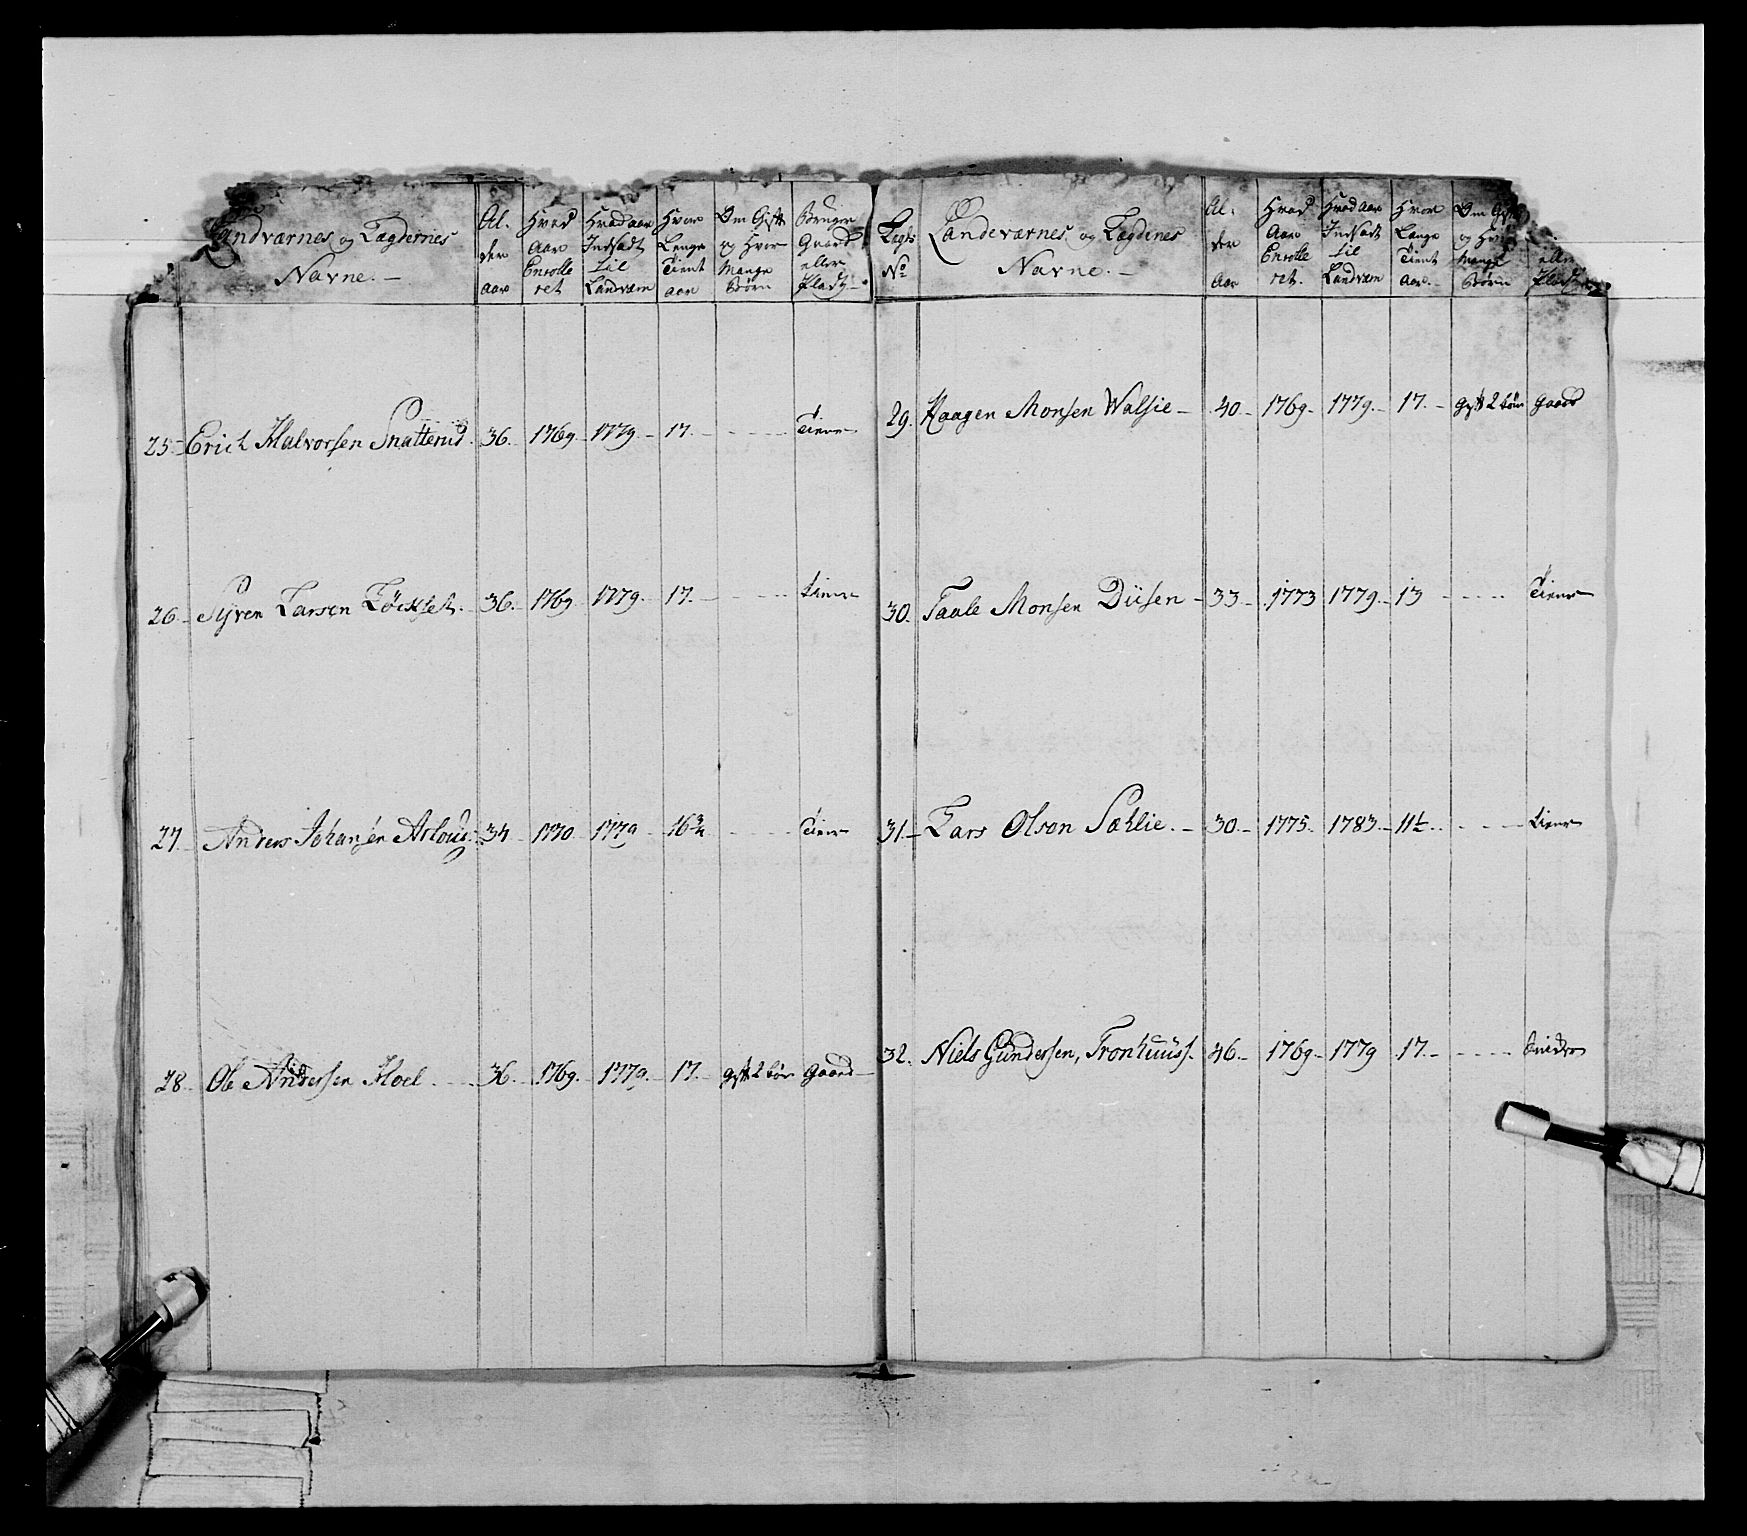 Landværnes og Lægdernes
Navne.—
Al-
der
aar
Hvad
Aar
Enrolle
ret
Hvad aar
Indsadt
til
Landværn
Hvor
Længe
Tient
aar
Om Gift
og Hvor
Mange
Børn
Bruger
Gaard
eller
Plads
25. Erich Halvorsen Snatterud. 36. 1769 1779 17. Tiener
26. Syren Larsen Løckset. 36. 1769 1779. 17. tiener
27. Anders Johansen 34 1770 1779 16¾ Tiener
28. Ole Andersen Hoel. 36. 1769. 1779. 17. gift 2 bør Gaard
Lægds
No
Landeværnes og Lægdenes
Navne.—
Al-
der
Aar
Hvad
Aar
Enrolle
ret.
Hvad Aar
Indsadt
til
Landværn
Hvor
Længe
Tient
Aar.
Om Gift
og Hvor
Mange
Børn
eller
Plads
29. Haagen Monsen Walsie— 40. 1769. 1779. 17. gift 2 børn gaard
30. Taale Monsen Diisen— 33. 1773 1779. 13 Tiener
31. Lars Olson Sæhlie.— 30. 1775. 1783. 11½ tiener
32. Niels Gundersen, Tronhuus. 46. 1769. 1779 17.